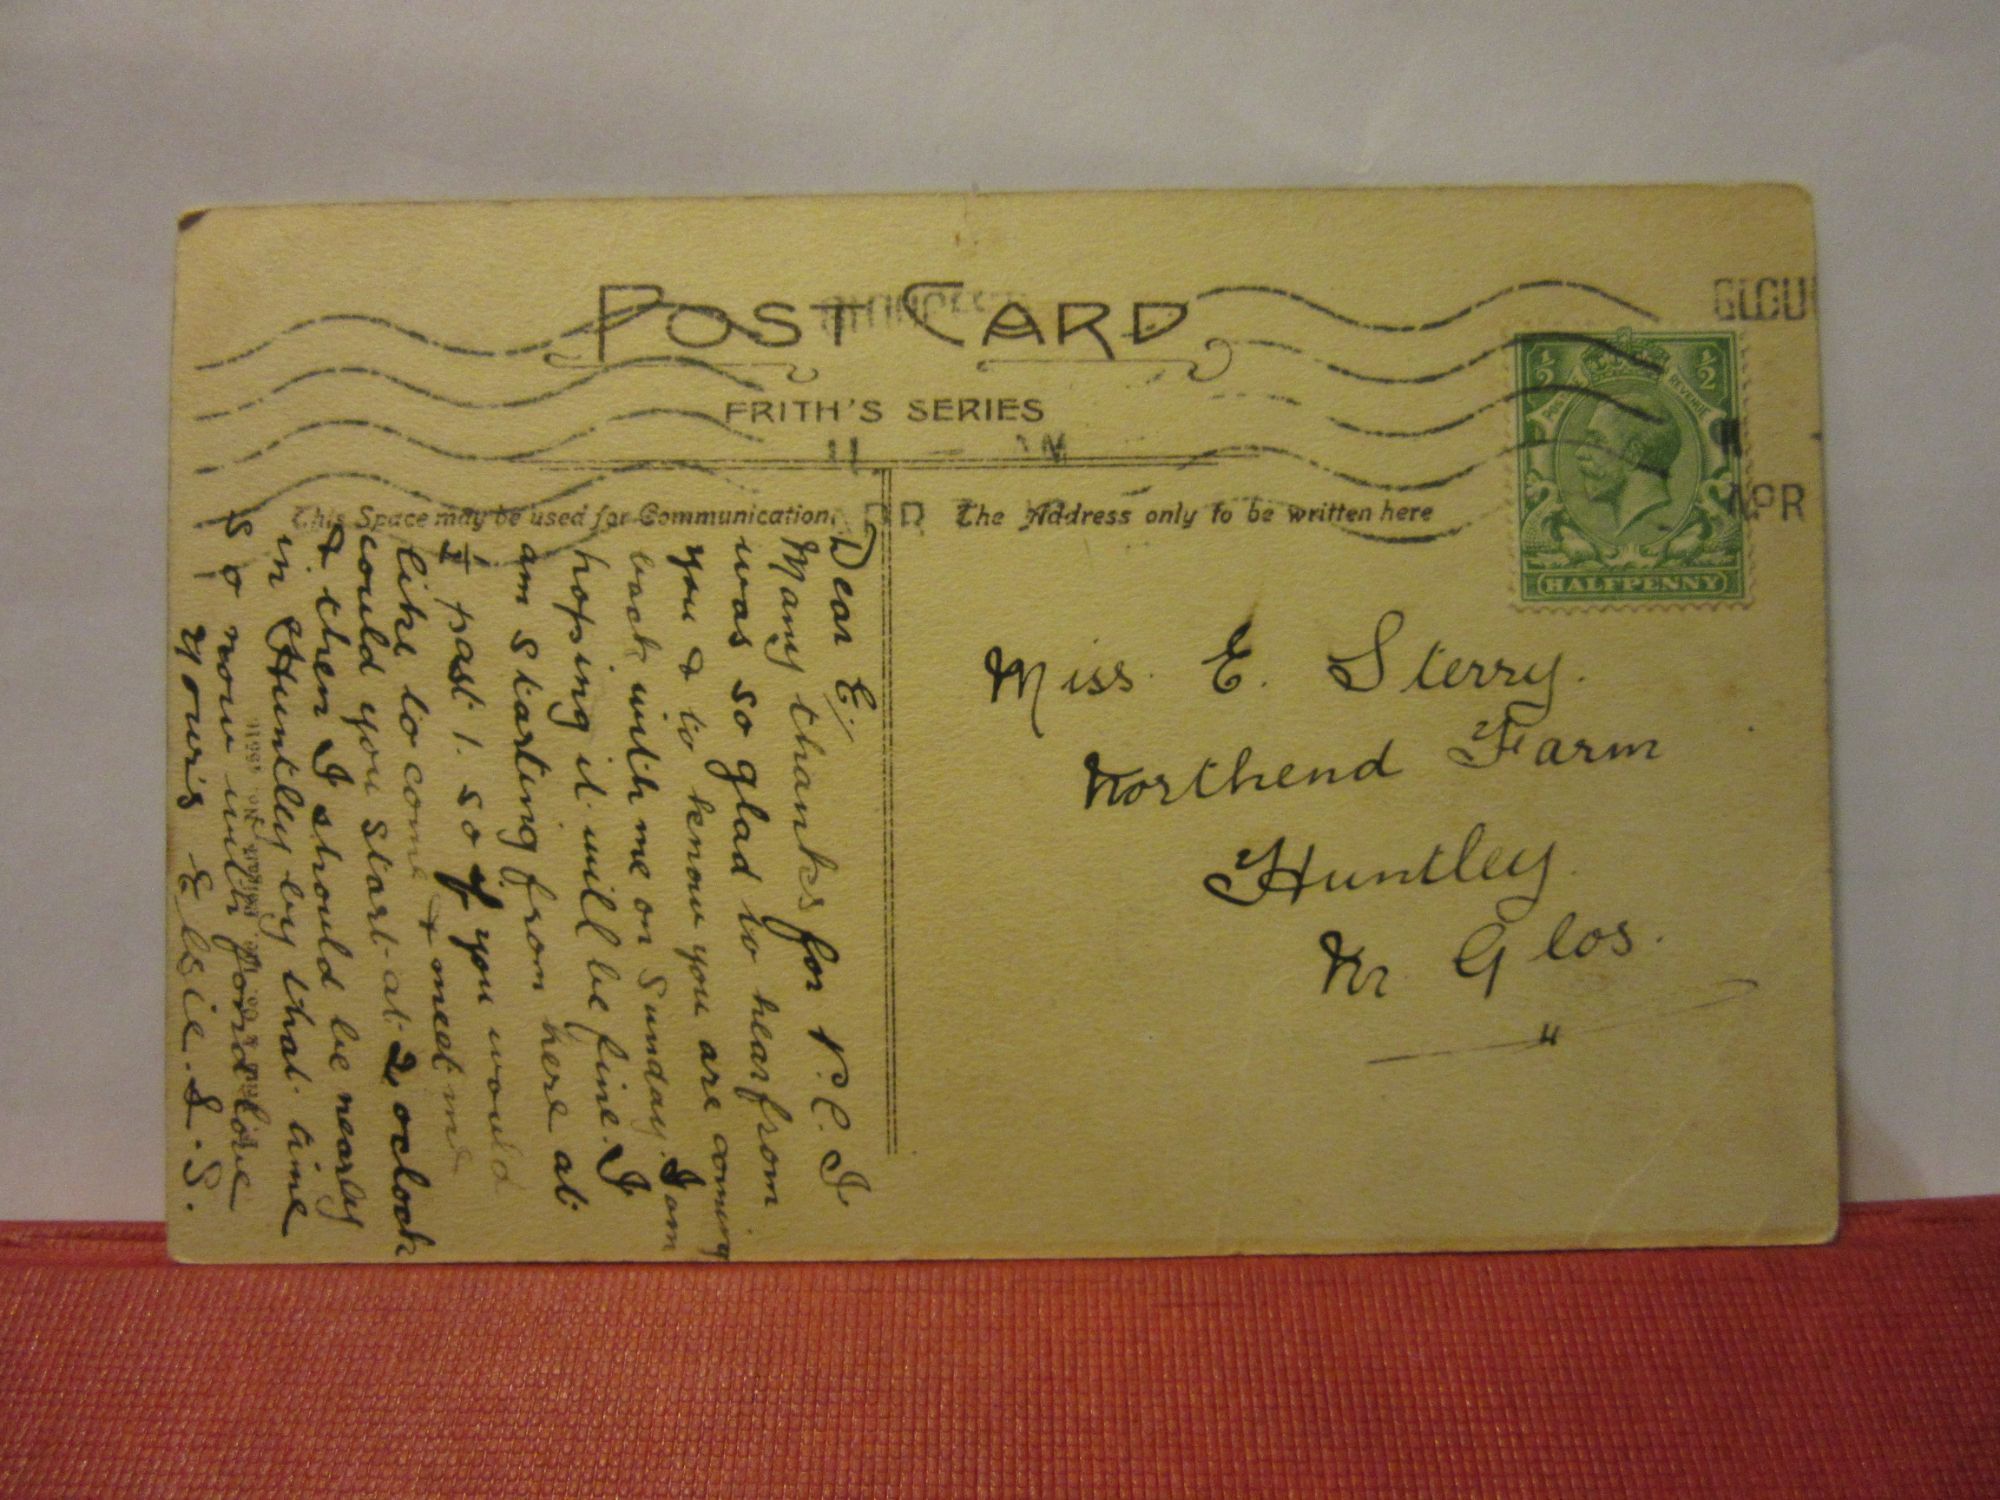 POST CARD
FRITH'S SERIES
This Space may be used for Communication.
The Address only to be written here
GLOU
APR
11 AM
½ ½
POSTAGE REVENUE
HALFPENNY
Miss. E. Sterry.
Northend Farm
Huntley.
Nr Glos.
Dear E/
Many thanks for P.C. I
was so glad to hear from
you & to know you are coming
back with me on Sunday. I am
hoping it will be fine. I
am starting from here at
½ past 1. so if you would
like to come & meet me
could you start at 2 oclock
& then I should be nearly
in Huntley by that time
so now with fond love
Yours Elsie. S. S.